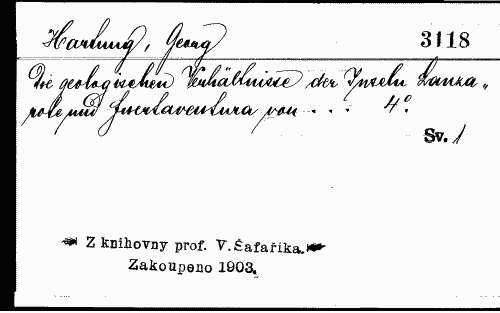 Hartung, Georg
3118
Die geologischen Verhältnisse der Inseln Lanza„
rote und Fuertaventura von . . . 4°.
Sv. 1
Z knihovny prof. V. Šafaříka.
Zakoupeno 1903.